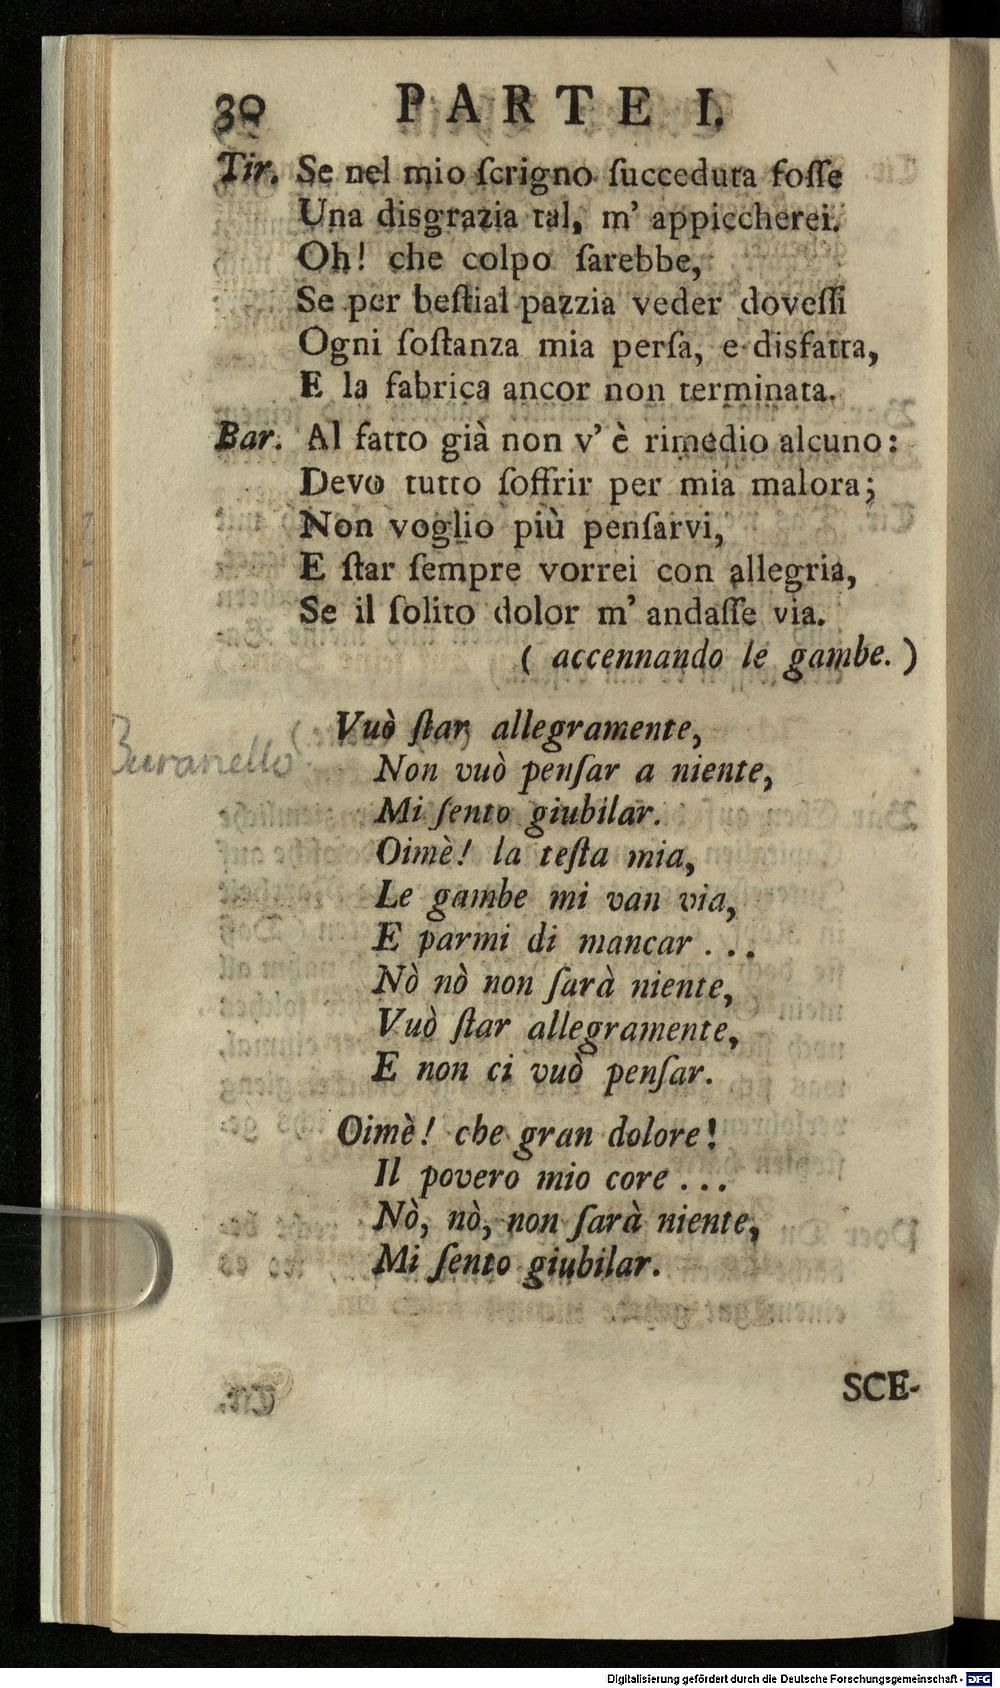 30 PARTE I.
Tir. Se nel mio ſcrigno ſucceduta foſſe
Una disgrazia tal, m' appiccherei.
Oh! che colpo ſarebbe,
Se per beſtial pazzia veder doveſſi
Ogni ſoſtanza mia perſa, e disfatta,
E la fabrica ancor non terminata.
Bar. Al fatto già non v' è rimedio alcuno:
Devo tutto ſoffrir per mia malora;
Non voglio più penſarvi,
E ſtar ſempre vorrei con allegria,
Se il ſolito dolor m' andaſſe via.
( accennando le gambe. )
Vuò ſtar allegramente,
Buranello
Non vuò penſar a niente,
Mi ſento giubilar.
Oimè! la teſta mia,
Le gambe mi van via,
E parmi di mancar . . .
Nò nò non ſarà niente,
Vuò ſtar allegramente,
E non ci vuò penſar.
Oimè! che gran dolore!
Il povero mio core . . .
Nò, nò, non ſarà niente,
Mi ſento giubilar.
SCE-
Digitalisierung gefördert durch die Deutsche Forschungsgemeinschaft - DFG